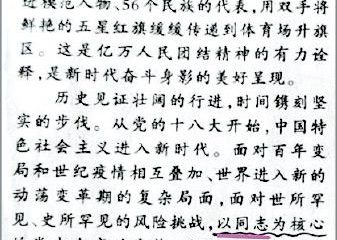 进模范人物、56个民族的代表,用双手将
鲜艳的五星红旗缓缓传递到体育场升旗
区。这是亿万人民团结精神的有力诠
释,是新时代奋斗身影的美好呈现。
历史见证壮阔的行进,时间镌刻坚
实的步伐。从党的十八大开始,中国特
色社会主义进入新时代。面对百年变
局和世纪疫情相互叠加、世界进入新的
动荡变革期的复杂局面,面对世所罕
见、史所罕见的风险挑战,以同志为核心